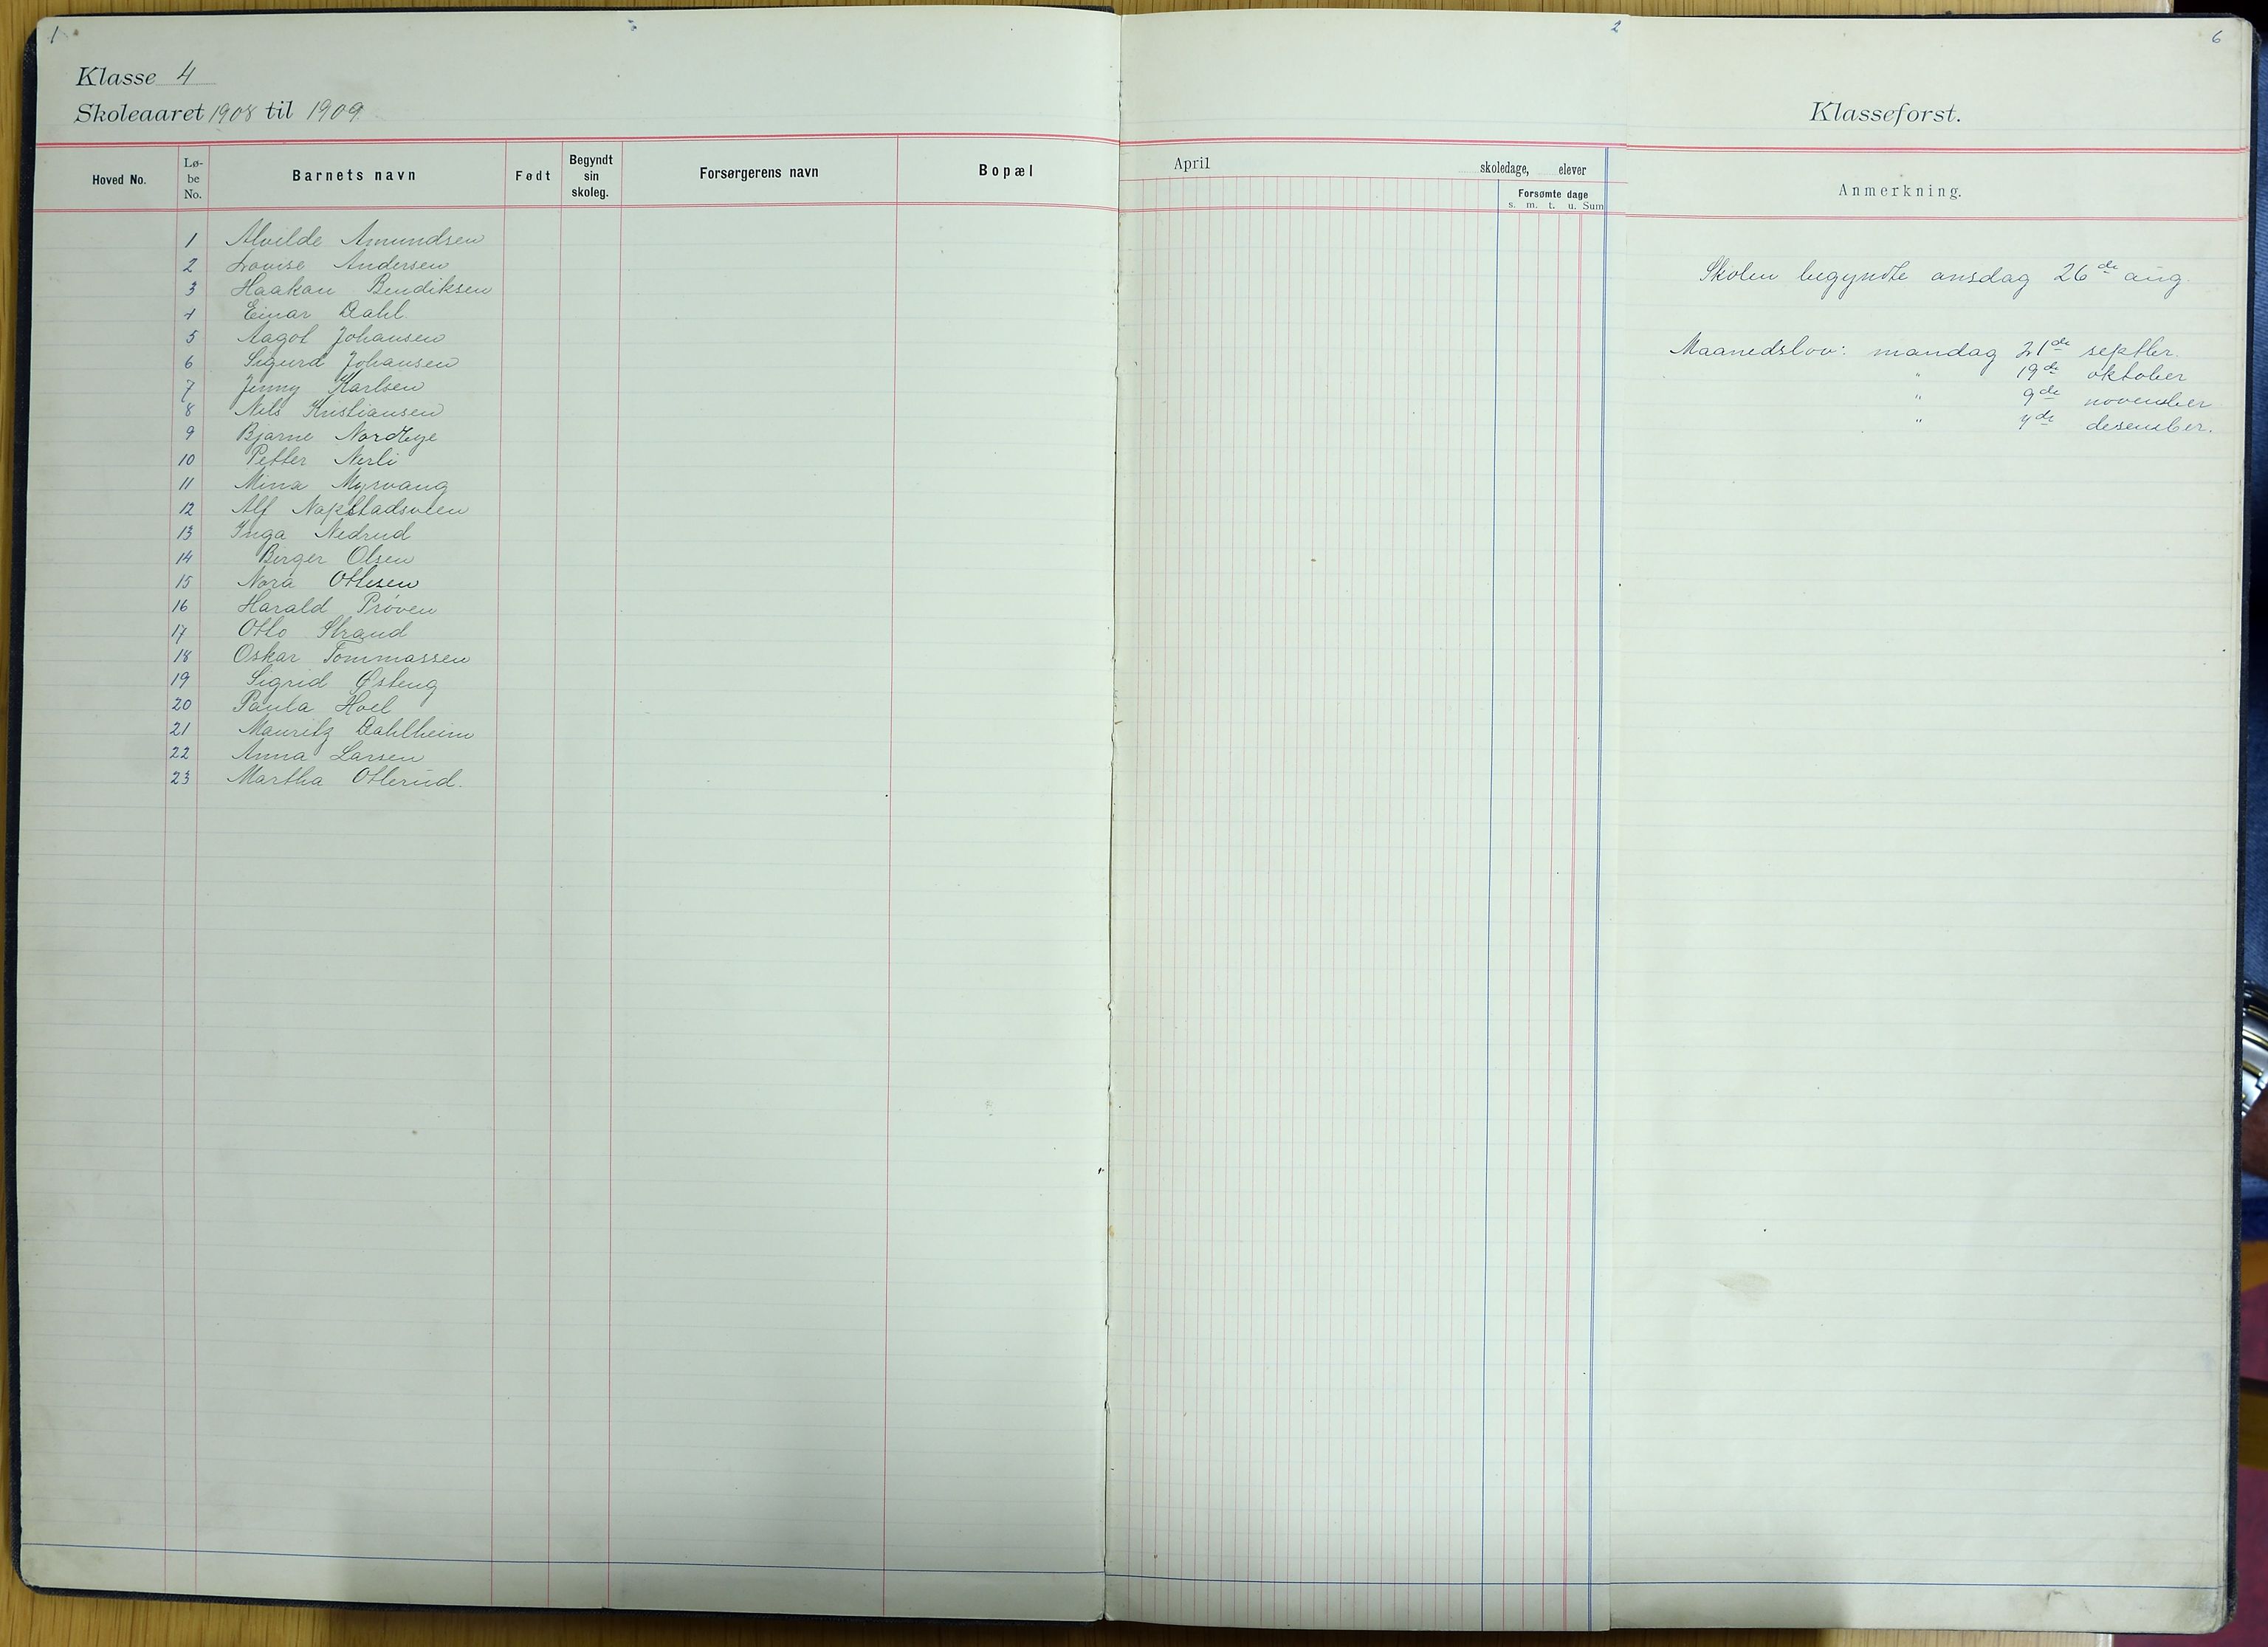 1
Klasse 4
Skoleaaret 1908 til 1909
Hoved No.
Lø-
be
No.
Barnets navn
Født
Begyndt
sin
skoleg.
Forsørgerens navn
Bopæl
1 Alvilde Amundsen
2 Lovise Andersen
3 Haakan Bendiksen
4 Einar Dahl.
5 Aagot Johansen
6 Sigurd Johansen
7 Jenny Karlsen
8 Nils Kristiansen
9 Bjarne Nordbye
10 Petter Nerli
11 Mina Myrvang
12 Alf Napstadsveen
13 Inga Nedrud
14 Birger Olsen
15 Nora Ottesen
16 Harald Prøven
17 Otto Strand
18 Oskar Tommassen
19 Sigrid Østeng
20 Paula Hoel
21 Mauritz Dahlheim
22 Anna Larsen
23 Martha Otterud.
2
April
skoledage, elever
Forsømte dage
s. m. t. u. Sum
6
Klasseforst.
Anmerkning.
Skolen begyndte onsdag 26de aug.
Maanedslov: mandag 21de septbr.
" 19de oktober
" 9de november
" 7de desember.